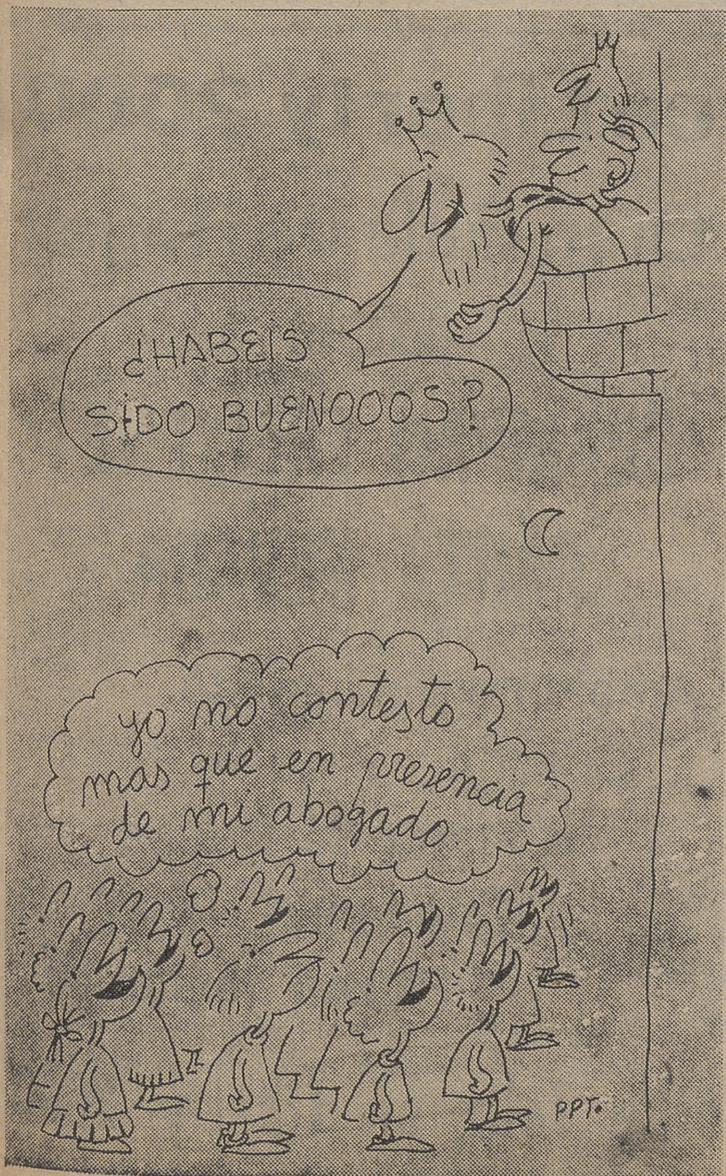 ¿HABEIS
SIDO BUENOOOS?
yo no contesto
mas que en presencia
de mi abogado.
PPT.